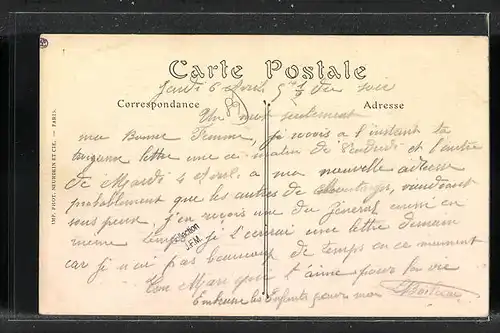 Carte Postale
Jeudi 6 Avril 5h ½ du soir
Correspondance
Adresse
Un mot seulement
ma Bonne Femme, je reçois à l'instant ta
lettre une ce matin de Vendredi et l'autre
de Mardi 4 Avril a ma nouvelle adresse
probablement que les autres de
sous peu, j'en reçois une du Général aussi en
même temps. Je t'écrirai une lettre demain
car je n'ai pas beaucoup de temps en ce moment
Ton Mari qui t'aime pour la vie
Embrasse les Enfants pour moi
IMP. PHOT. NEURDEIN ET CIE. — PARIS.
Collection
J.F.M.